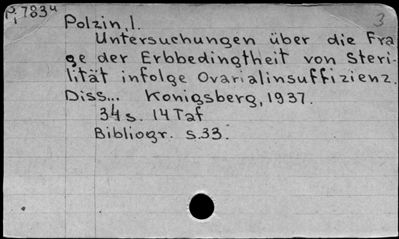 P; 7834
3
Polzin, I.
Untersuchungen über die Fra
ge der Erbbedingtheit von Steri-
lität infolge Ovarialinsuffizienz.
Diss... Konigsberg, 1937.
34 s. 14 Taf
Bibliogr. s. 33.